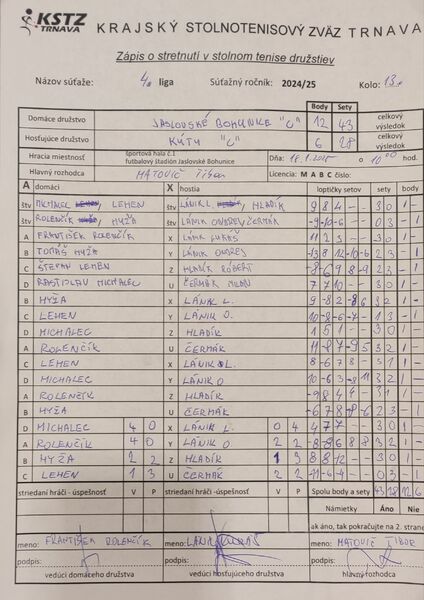 KSTZ
TRNAVA
KRAJSKÝ STOLNOTENISOVÝ ZVÄZ TRNAVA
Zápis o stretnutí v stolnom tenise družstiev
Názov súťaže: 4. liga Súťažný ročník: 2024/25 Kolo: 13.
Body Sety
Domáce družstvo JASLOVSKÉ BOHUNICE "C" 12 43 celkový výsledok
Hosťujúce družstvo KÚTY "C" 6 28 celkový výsledok
Hracia miestnosť Športová hala č.1 futbalový štadión Jaslovské Bohunice Dňa: o 10 00 hod.
Hlavný rozhodca MATOVIČ Tibor Licencia: M A B C číslo:
A domáci X hostia loptičky setov sety body
štv MICHALEC, LEHEN štv LÁNIK L., HLADÍK 9 8 4 - - 3 0 1 -
štv ROLENČÍK, HYŽA štv LÁNIK ONDREJ, ČERMÁK -9 -10 -6 - - 0 3 - 1
A FRANTIŠEK ROLENČÍK X LÁNIK LUKÁŠ 11 2 3 - - 3 0 1 -
B TOMÁŠ HYŽA Y LÁNIK ONDREJ 2 3 - 1
C ŠTEFAN LEHEN Z HLADÍK RÓBERT -8 -6 9 8 -9 2 3 - 1
D RASTISLAV MICHALEC U ČERMÁK MILAN 7 7 10 - - 3 0 1 -
B HYŽA X LÁNIK L. 3 2 1 -
C LEHEN Y LÁNIK O. 1 3 - 1
D MICHALEC Z HLADÍK 3 0 1 -
A ROLENČÍK U ČERMÁK 3 2 1 -
C LEHEN X LÁNIK L. 3 1 1 -
D MICHALEC Y LÁNIK O 3 2 1 -
A ROLENČÍK Z HLADÍK -9 8 4 4 3 1 1 -
B HYŽA U ČERMÁK -6 7 8 -8 -6 2 3 - 1
D MICHALEC 4 0 X LÁNIK L. 0 4 4 7 7 - - 3 0 1 -
A ROLENČÍK 4 0 Y LÁNIK O. 2 2 3 2 1 -
B HYŽA 2 2 Z HLADÍK 1 3 8 8 12 - - 3 0 1 -
C LEHEN 1 3 U ČERMÁK 2 2 0 3 - 1
striedaní hráči - úspešnosť V P striedaní hráči - úspešnosť V P Spolu body a sety 43 28 12 6
Námietky Áno Nie
ak áno, tak pokračujte na 2. strane
meno: FRANTIŠEK ROLENČÍK meno: LÁNIK LUKÁŠ meno: MATOVIČ TIBOR
podpis: podpis: podpis:
vedúci domáceho družstva vedúci hosťujúceho družstva hlavný rozhodca